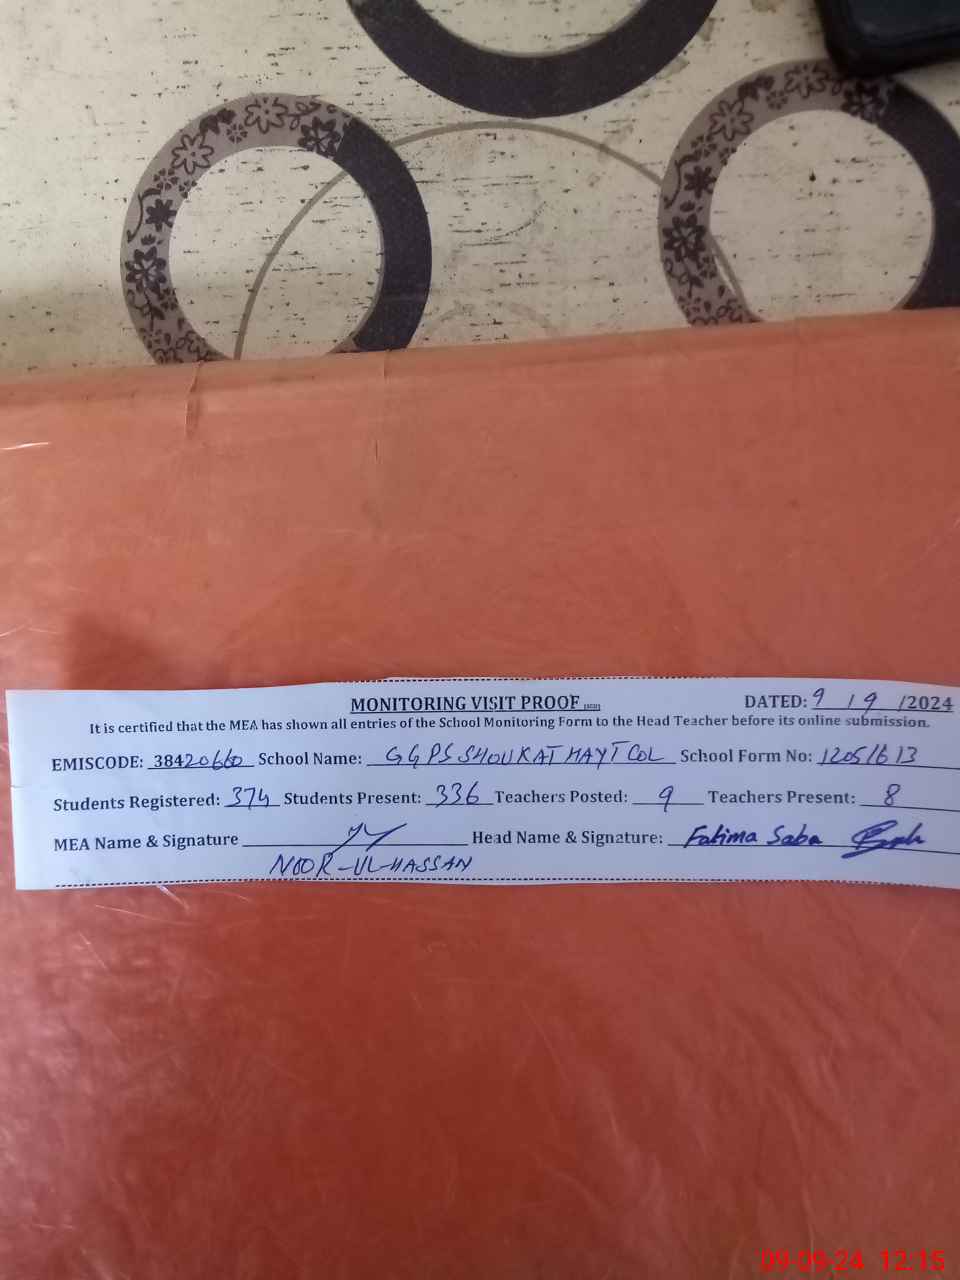 MONITORING VISIT PROOF DATED: 9 / 9 /2024
It is certified that the MEA has shown all entries of the School Monitoring Form to the Head Teacher before its online submission.
EMISCODE: 38420660 School Name: GGPS SHOUKAT HAYT COL School Form No: 12051613
Students Registered: 374 Students Present: 336 Teachers Posted: 9 Teachers Present: 8
MEA Name & Signature Head Name & Signature: Fatima Saba
NOOR-UL-HASSAN
09-09-24 12:15